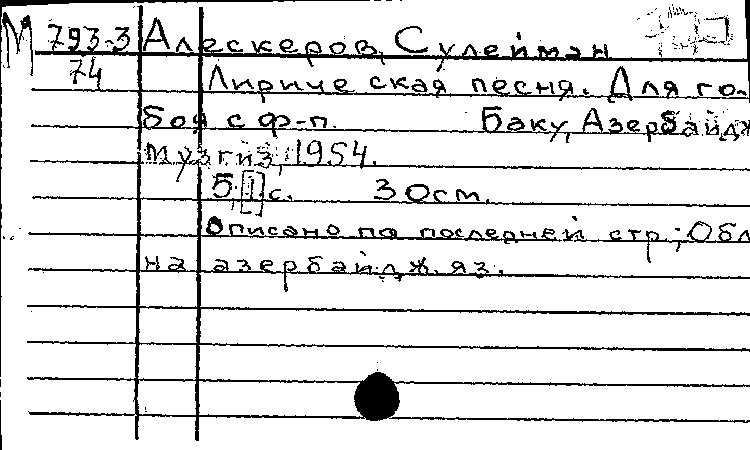 М 793-3 Алескеров, Сулейман
74 Лириче ская песня. Для го-
боя с ф-п. Баку, Азербайдж
музгиз, 1954.
5,[1] с. 30см.
Описано по последней стр.; Обл
на азербайдж. яз.